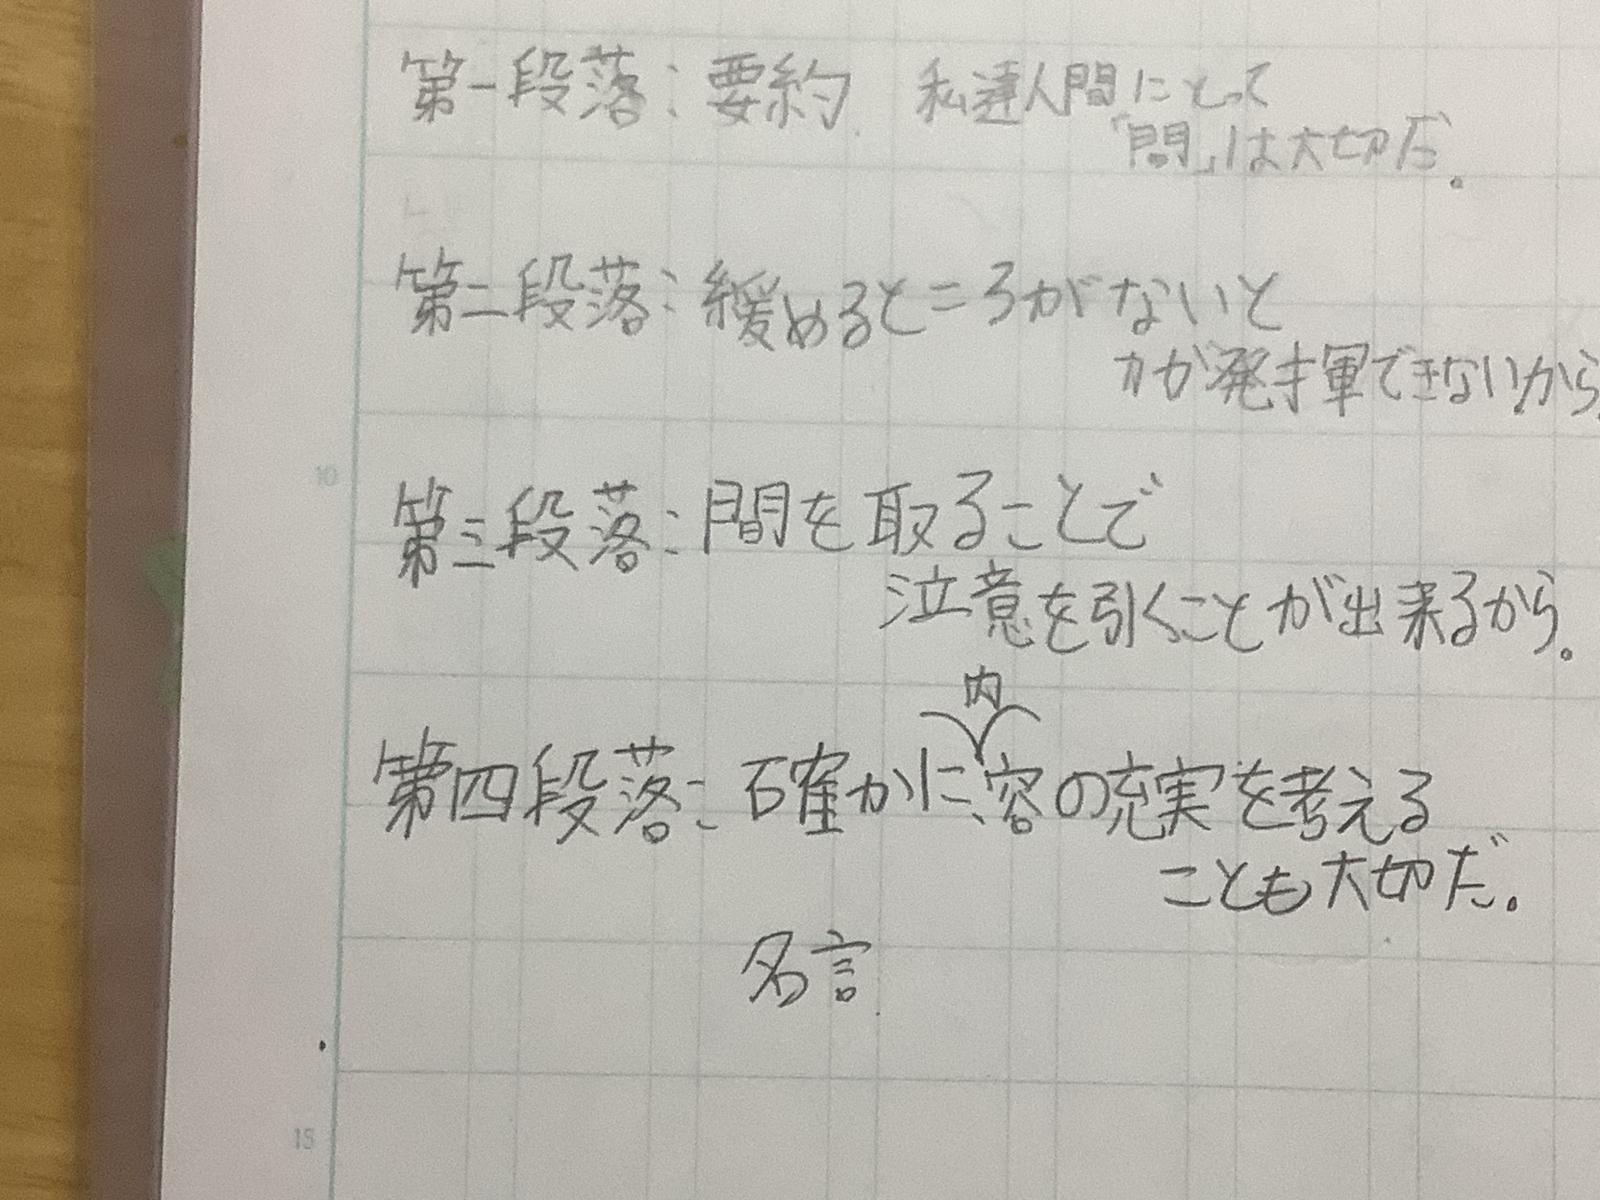 第一段落:要約 私達人間にとって
「間」は大切だ。
第二段落:緩めるところがないと
力が発揮できないから
10
第三段落:間を取ることで
注意を引くことが出来るから。
第四段落:確かに内容の充実を考える
ことも大切だ。
名言
15